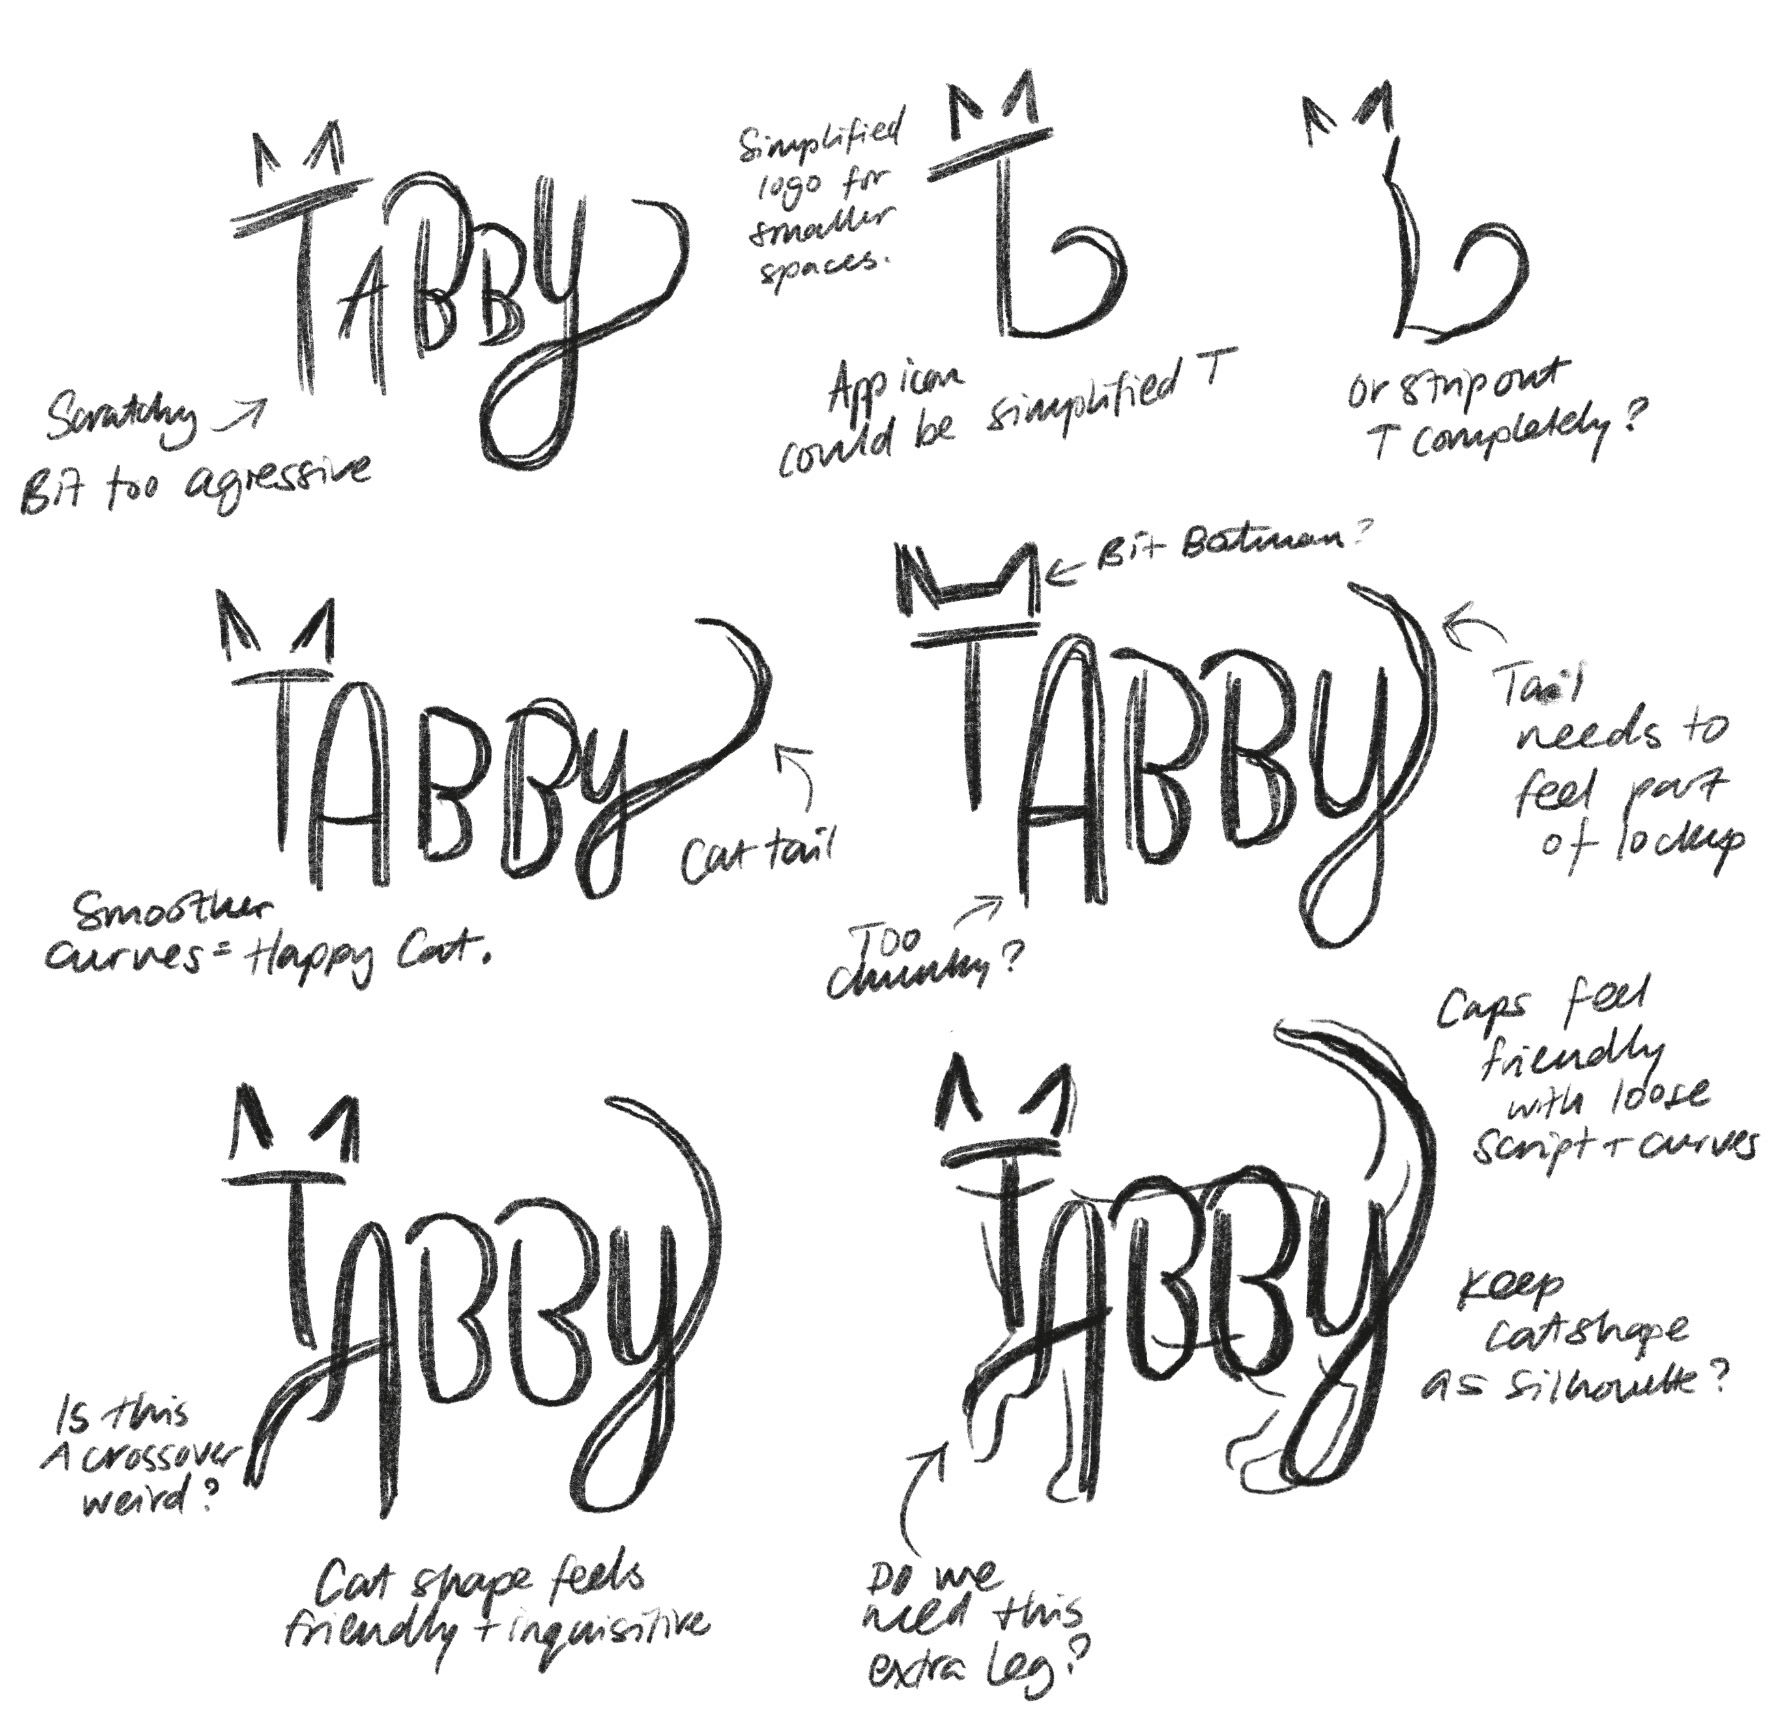 TABBY
Scratchy
Bit too agressive
Simplified
logo for
smaller
spaces.
T
App icon
could be simplified T
or strip out
T completely?
TABBY
Cat tail
Smoother
curves = Happy Cat.
TABBY
Bit Batman?
Tail
needs to
feel part
of lockup
Too
chunky?
TABBY
Is this
A crossover
weird?
Cat shape feels
friendly + inquisitive
TABBY
Caps feel
friendly
with loose
script + curves
Keep
cat shape
as silhouette?
Do we
need this
extra leg?